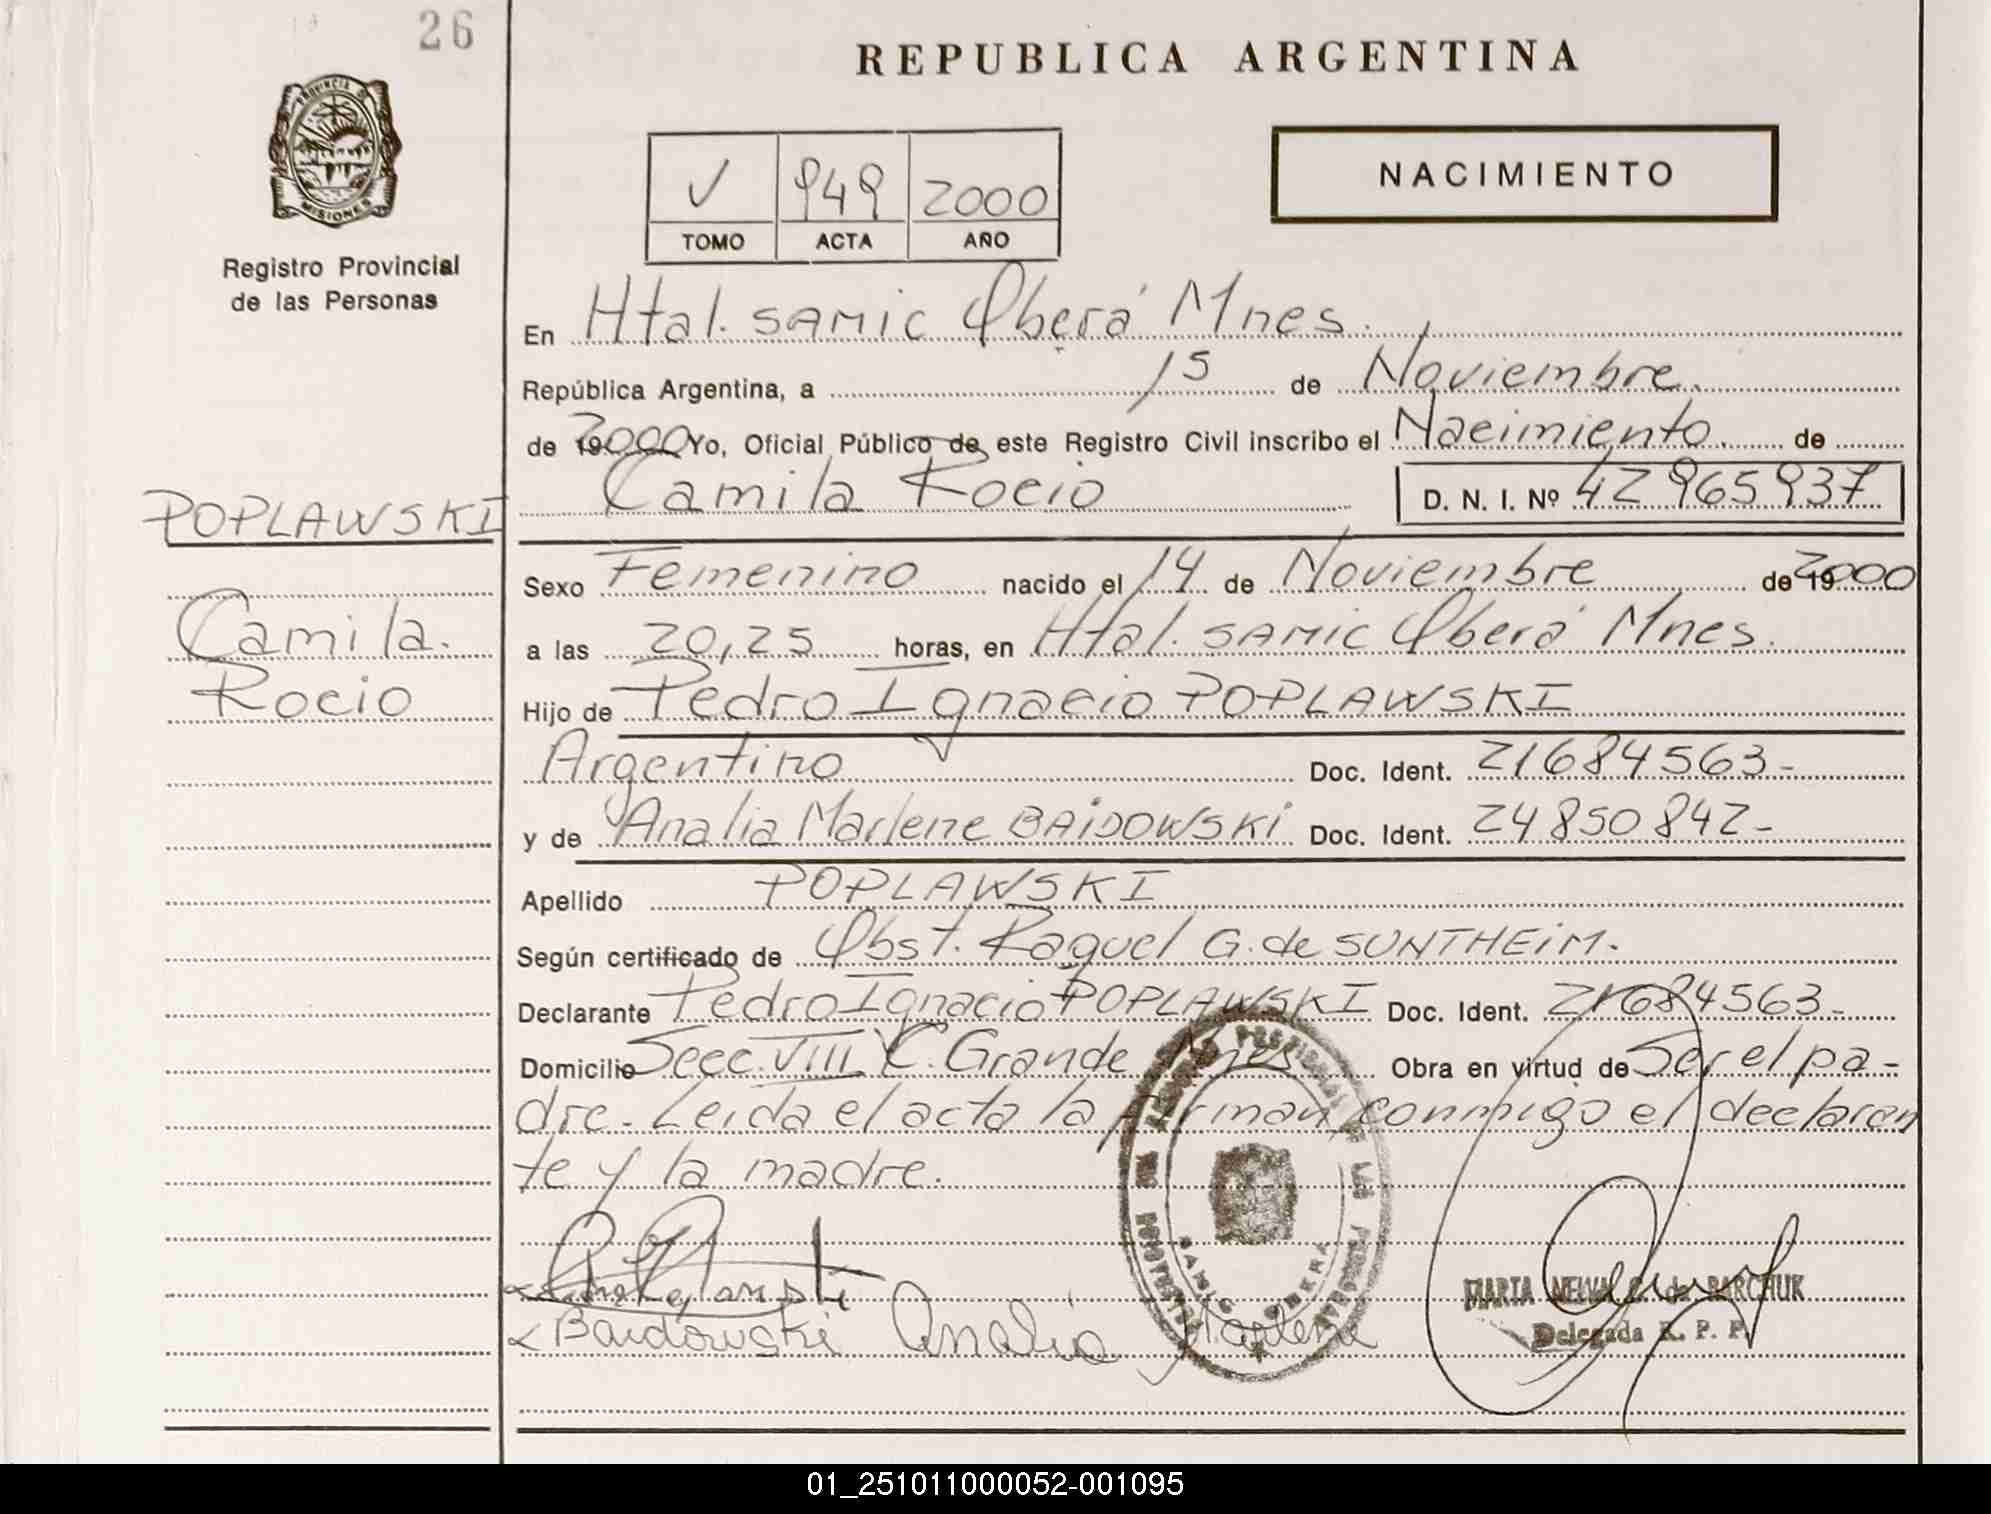 26
REPUBLICA ARGENTINA
PROVINCIA DE
MISIONES
Registro Provincial
de las Personas
V 949 2000
TOMO ACTA AÑO
NACIMIENTO
En Htal. SAMIC Oberá Mnes.
República Argentina, a 15 de Noviembre.
de 2000 Yo, Oficial Público de este Registro Civil inscribo el Nacimiento. de
Camila Rocio D. N. I. Nº 42965937
POPLAWSKI
Camila.
Rocio
Sexo Femenino nacido el 14 de Noviembre de 2000
a las 20,25 horas, en Htal. SAMIC Oberá Mnes.
Hijo de Pedro Ignacio POPLAWSKI
Argentino Doc. Ident. 21684563-
y de Analia Marlene BAIDOWSKI Doc. Ident. 24850842-
Apellido POPLAWSKI
Según certificado de Obst. Raquel G. de SUNTHEIM.
Declarante Pedro Ignacio POPLAWSKI Doc. Ident. 21684563-
Domicilio Secc. VIII C. Grande Mnes Obra en virtud de Ser el pa-
dre. Leida el acta la firman conmigo el declaran
te y la madre.
Baidowski Analia Marlene
MARTA NELVA G. de BARCHUK
Delegada R. P. P.
01_251011000052-001095